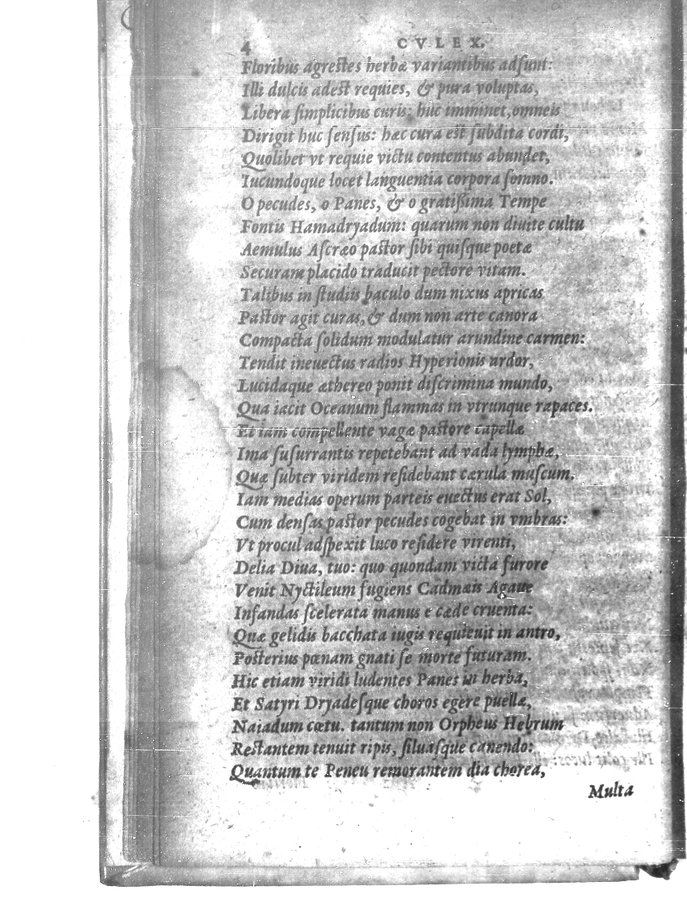 4 CVLEX.
Floribus agrestes herbæ variantibus adsunt:
Illi dulcis adest requies, & pura voluptas,
Libera simplicibus curis: huc imminet, omneis
Dirigit huc sensus: hæc cura est subdita cordi,
Quolibet vt requie victu contentus abundet,
Iucundoque locet languentia corpora somno.
O pecudes, o Panes, & o gratissima Tempe
Fontis Hamadryadum: quarum non diuite cultu
Aemulus Ascræo pastor sibi quisque poetæ
Securam placido traducit pectore vitam.
Talibus in studiis baculo dum nixus apricas
Pastor agit curas, & dum non arte canora
Compacta solidum modulatur arundine carmen:
Tendit ineuectus radios Hyperionis ardor,
Lucidaque æthereo ponit discrimina mundo,
Qua iacit Oceanum flammas in vtrunque rapaces.
Et iam compellente vagæ pastore capellæ
Ima susurrantis repetebant ad vada lymphæ,
Quæ subter viridem residebant cærula muscum.
Iam medias operum parteis euectus erat Sol,
Cum densas pastor pecudes cogebat in vmbras:
Vt procul adspexit luco residere virenti,
Delia Diua, tuo: quo quondam victa furore
Venit Nyctileum fugiens Cadmæis Agaue
Infandas scelerata manus e cæde cruenta:
Quæ gelidis bacchata iugis requieuit in antro,
Posterius pœnam gnati se morte futuram.
Hic etiam viridi ludentes Panes in herba,
Et Satyri Dryadesque choros egere puellæ,
Naiadum cœtu. tantum non Orpheus Hebrum
Restantem tenuit ripis, siluasque canendo:
Quantum te Peneu remorantem dia chorea,
Multa